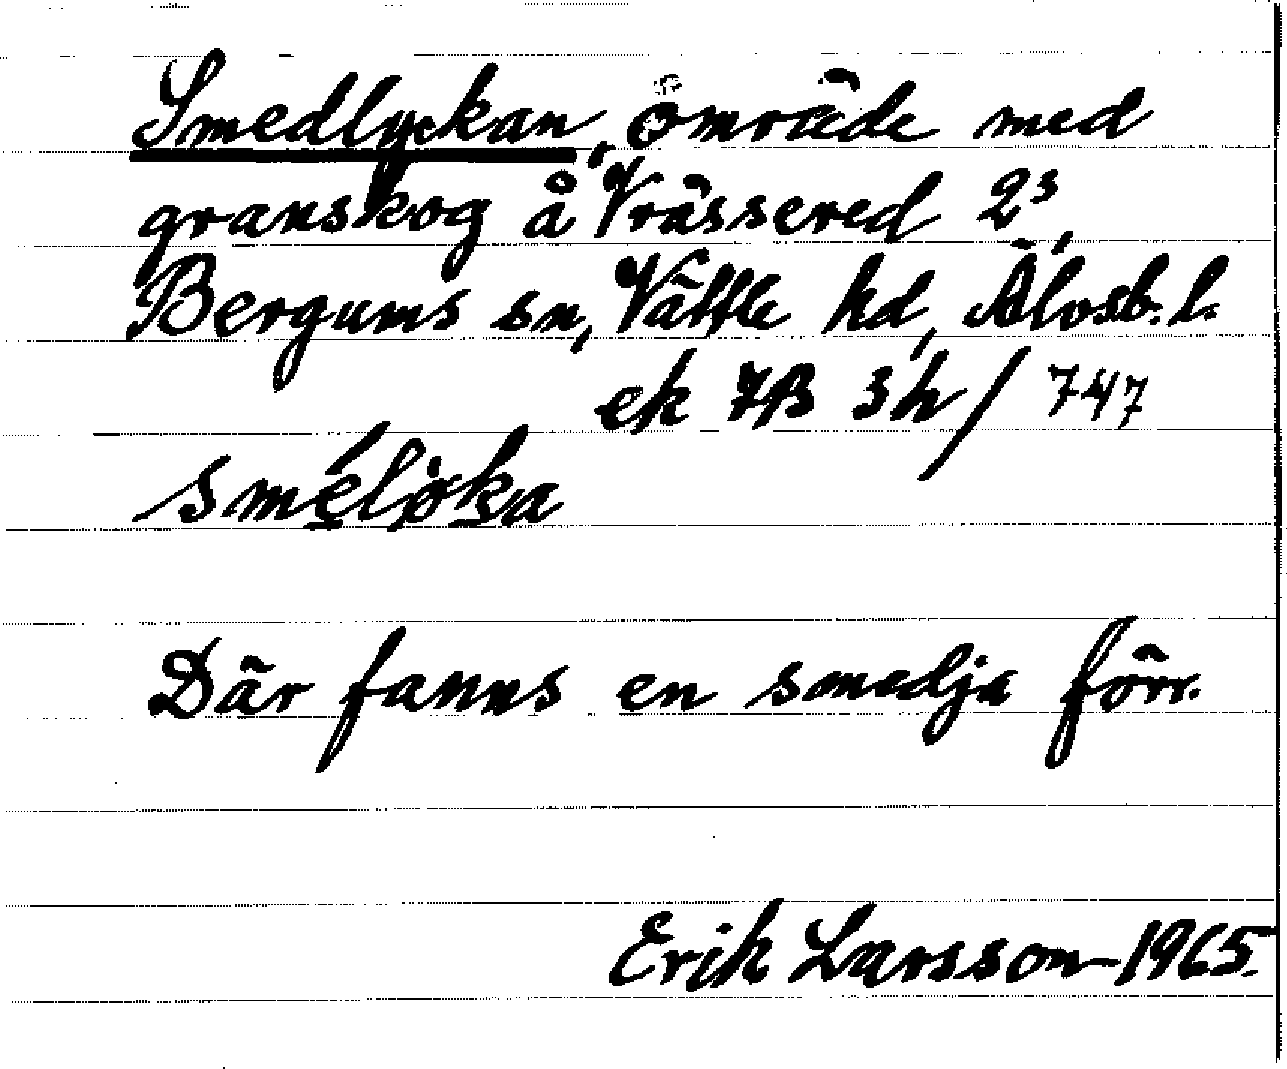 Smedlyckan, område med
granskog å Vrässered 2³,
Bergums sn, Vättle hd, Älvsb. l.
ek 7B 3h / 747
smé̱lø̀ḵa
Där fanns en smedja förr.
Erik Larsson 1965.